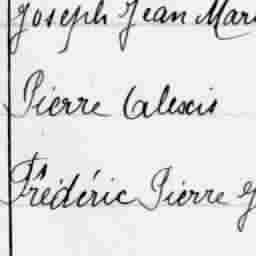 Joseph Jean Mar
Pierre Alexis
Frédéric Pierre